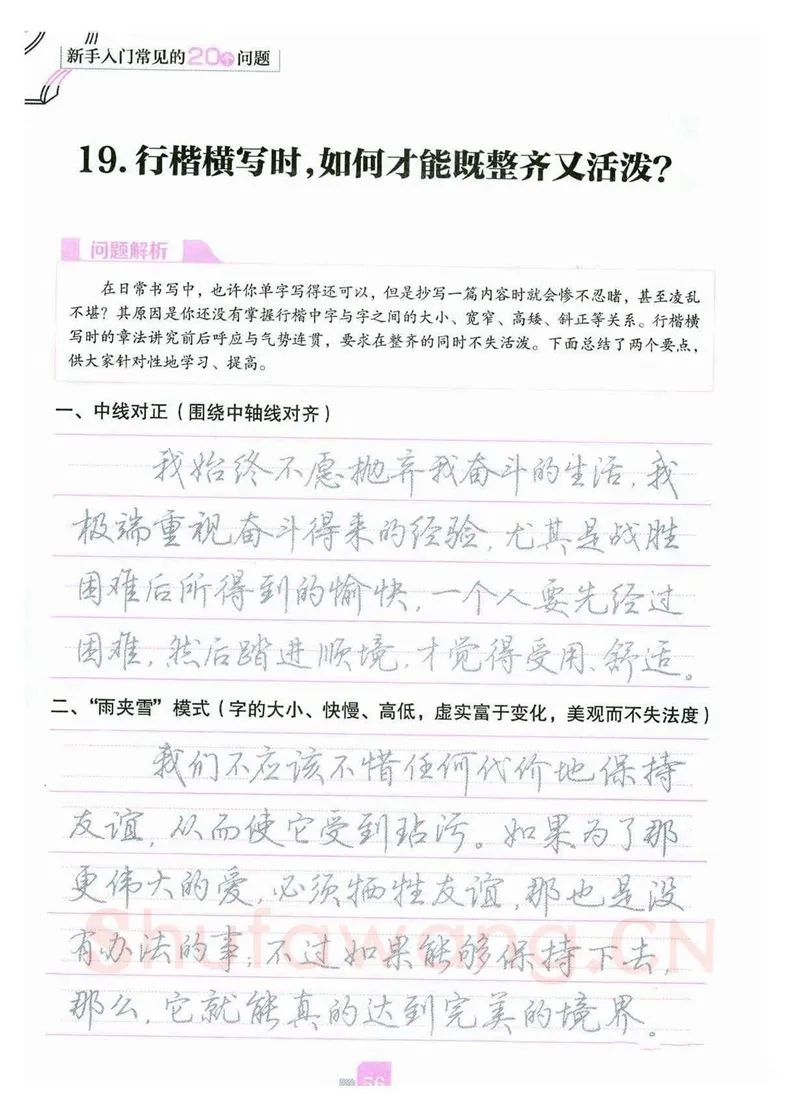 新手入门常见的20个问题
19.行楷横写时,如何才能既整齐又活泼?
问题解析
在日常书写中,也许你单字写得还可以,但是抄写一篇内容时就会惨不忍睹,甚至凌乱
不堪?其原因是你还没有掌握行楷中字与字之间的大小、宽窄、高矮、斜正等关系。行楷横
写时的章法讲究前后呼应与气势连贯,要求在整齐的同时不失活泼。下面总结了两个要点,
供大家针对性地学习、提高。
一、中线对正(围绕中轴线对齐)
我始终不愿抛弃我奋斗的生活,我
极端重视奋斗得来的经验,尤其是战胜
困难后所得到的愉快,一个人要先经过
困难,然后踏进顺境,才觉得受用、舒适。
二、“雨夹雪”模式(字的大小、快慢、高低,虚实富于变化,美观而不失法度)
我们不应该不惜任何代价地保持
友谊,从而使它受到玷污。如果为了那
更伟大的爱,必须牺牲友谊,那也是没
有办法的事;不过如果能够保持下去,
那么,它就能真的达到完美的境界。
Shufawang.CN
56